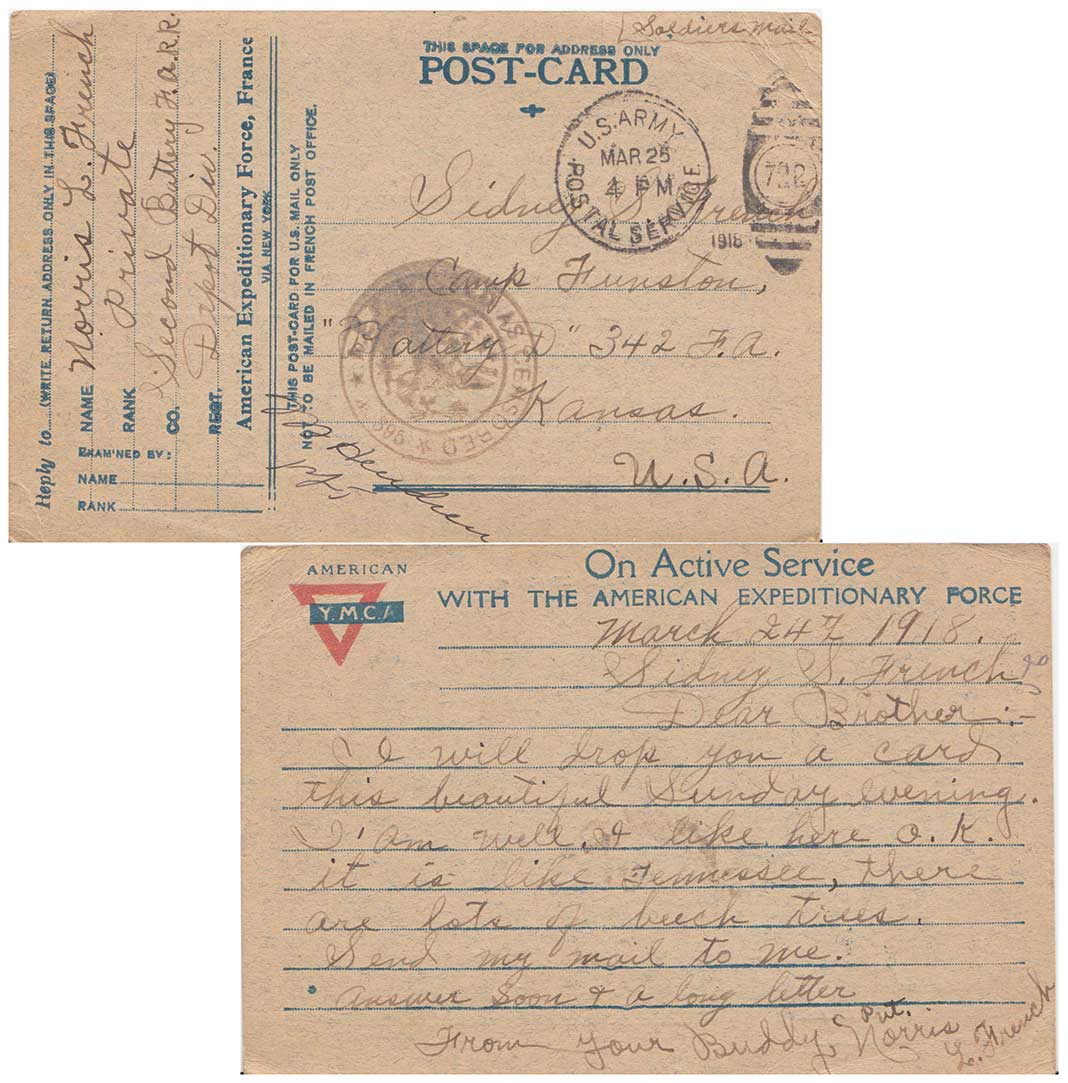 Soldiers Mail
THIS SPACE FOR ADDRESS ONLY
POST-CARD
U.S. ARMY
MAR 25
4 PM
POSTAL SERVICE
1918
722
Sidney S. French
Camp Funston,
"Battery D" 342 F.A.
Kansas.
U.S.A.
CENSORED
Reply to (WRITE RETURN ADDRESS ONLY IN THIS SPACE)
NAME Norris L. French
RANK Private
CO. Second Battery F.A.R.R.
REGT. Dept Div.
American Expeditionary Force, France
VIA NEW YORK
THIS POST-CARD FOR U.S. MAIL ONLY
NOT TO BE MAILED IN FRENCH POST OFFICE.
EXAMINED BY:
NAME
RANK
AMERICAN
Y.M.C.A
On Active Service
WITH THE AMERICAN EXPEDITIONARY FORCE
March 24th 1918.
Sidney S. French
Dear Brother:-
I will drop you a card
this beautiful Sunday evening.
I'am well. I like here O.K.
it is like Tennessee, there
are lots of beech trees.
Send my mail to me.
Answer soon & a long letter
From Your Buddy, Pvt. Norris
L. French